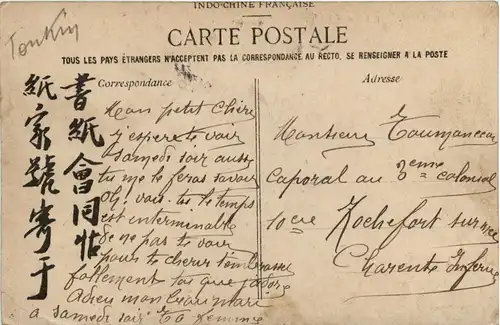 INDO-CHINE FRANÇAISE
Tonkin
CARTE POSTALE
TOUS LES PAYS ÉTRANGERS N'ACCEPTENT PAS LA CORRESPONDANCE AU RECTO, SE RENSEIGNER A LA POSTE
Correspondance
書紙會同帖
紙家號寄于
Mon petit Chéri
j'espère te voir
samedi soir aussi
tu me le feras savoir
Oh! vois-tu le temps
est interminable
de ne pas te voir
pour te chérir t'embrasser
follement toi que j'adore
Adieu mon mari
a samedi soir Ta femme
Adresse
Monsieur
Caporal au 3eme colonial
10 cie Rochefort sur mer
Charente Infre